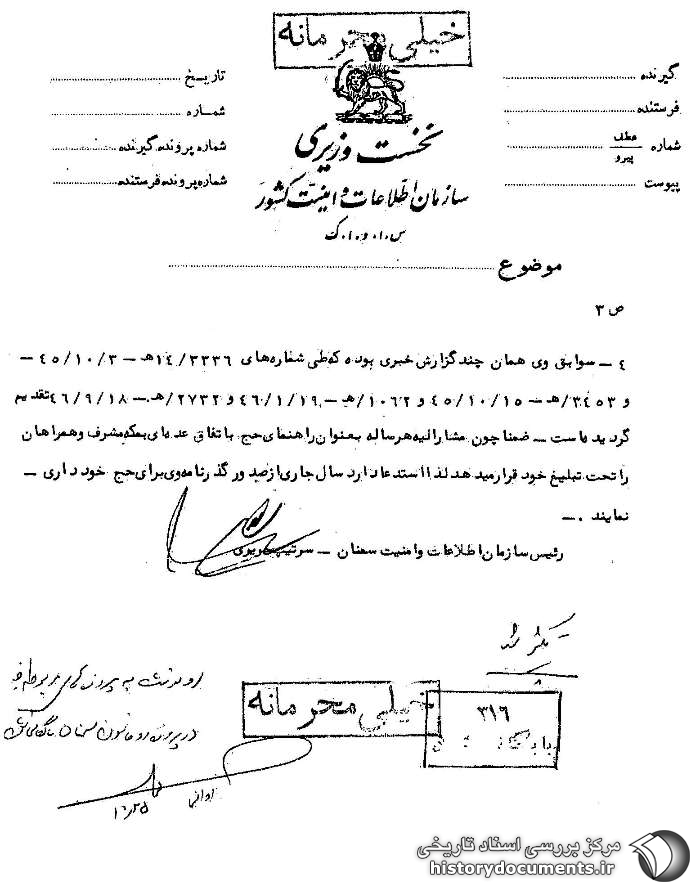 خیلی محرمانه
گیرنده
فرستنده
شماره عطف
پیرو
پیوست
تاریخ
شماره
شماره پرونده گیرنده
شماره پرونده فرستنده
نخست وزیری
سازمان اطلاعات و امنیت کشور
س.ا.و.ا.ک
موضوع
ص ۳
٤ – سوابق وی همان چند گزارش خبری بوده که طی شماره‌های ۱٤/۳۳۳۶هـ – ٤٥/۱۰/۳ –
و ۳٤٥۳/هـ – ٤٥/۱۰/۱٥ و ۱۰۶۲/هـ – ٤۶/۱/۱۹ و ۲۷۳۲/هـ – ٤۶/۹/۱۸ تقدیم
گردیده است – ضمنا چون مشارالیه هرساله بعنوان راهنمای حج باتفاق عده‌ای بمکه مشرف و همراهان
را تحت تبلیغ خود قرار میدهد لذا استدعا دارد سال جاری از صدور گذرنامه وی برای حج خودداری –
نمایند . –
رئیس سازمان اطلاعات و امنیت سمنان – سرتیپ
خیلی محرمانه
۳۱۶
به پرونده
در پرونده
مرکز بررسی اسناد تاریخی
historydocuments.ir